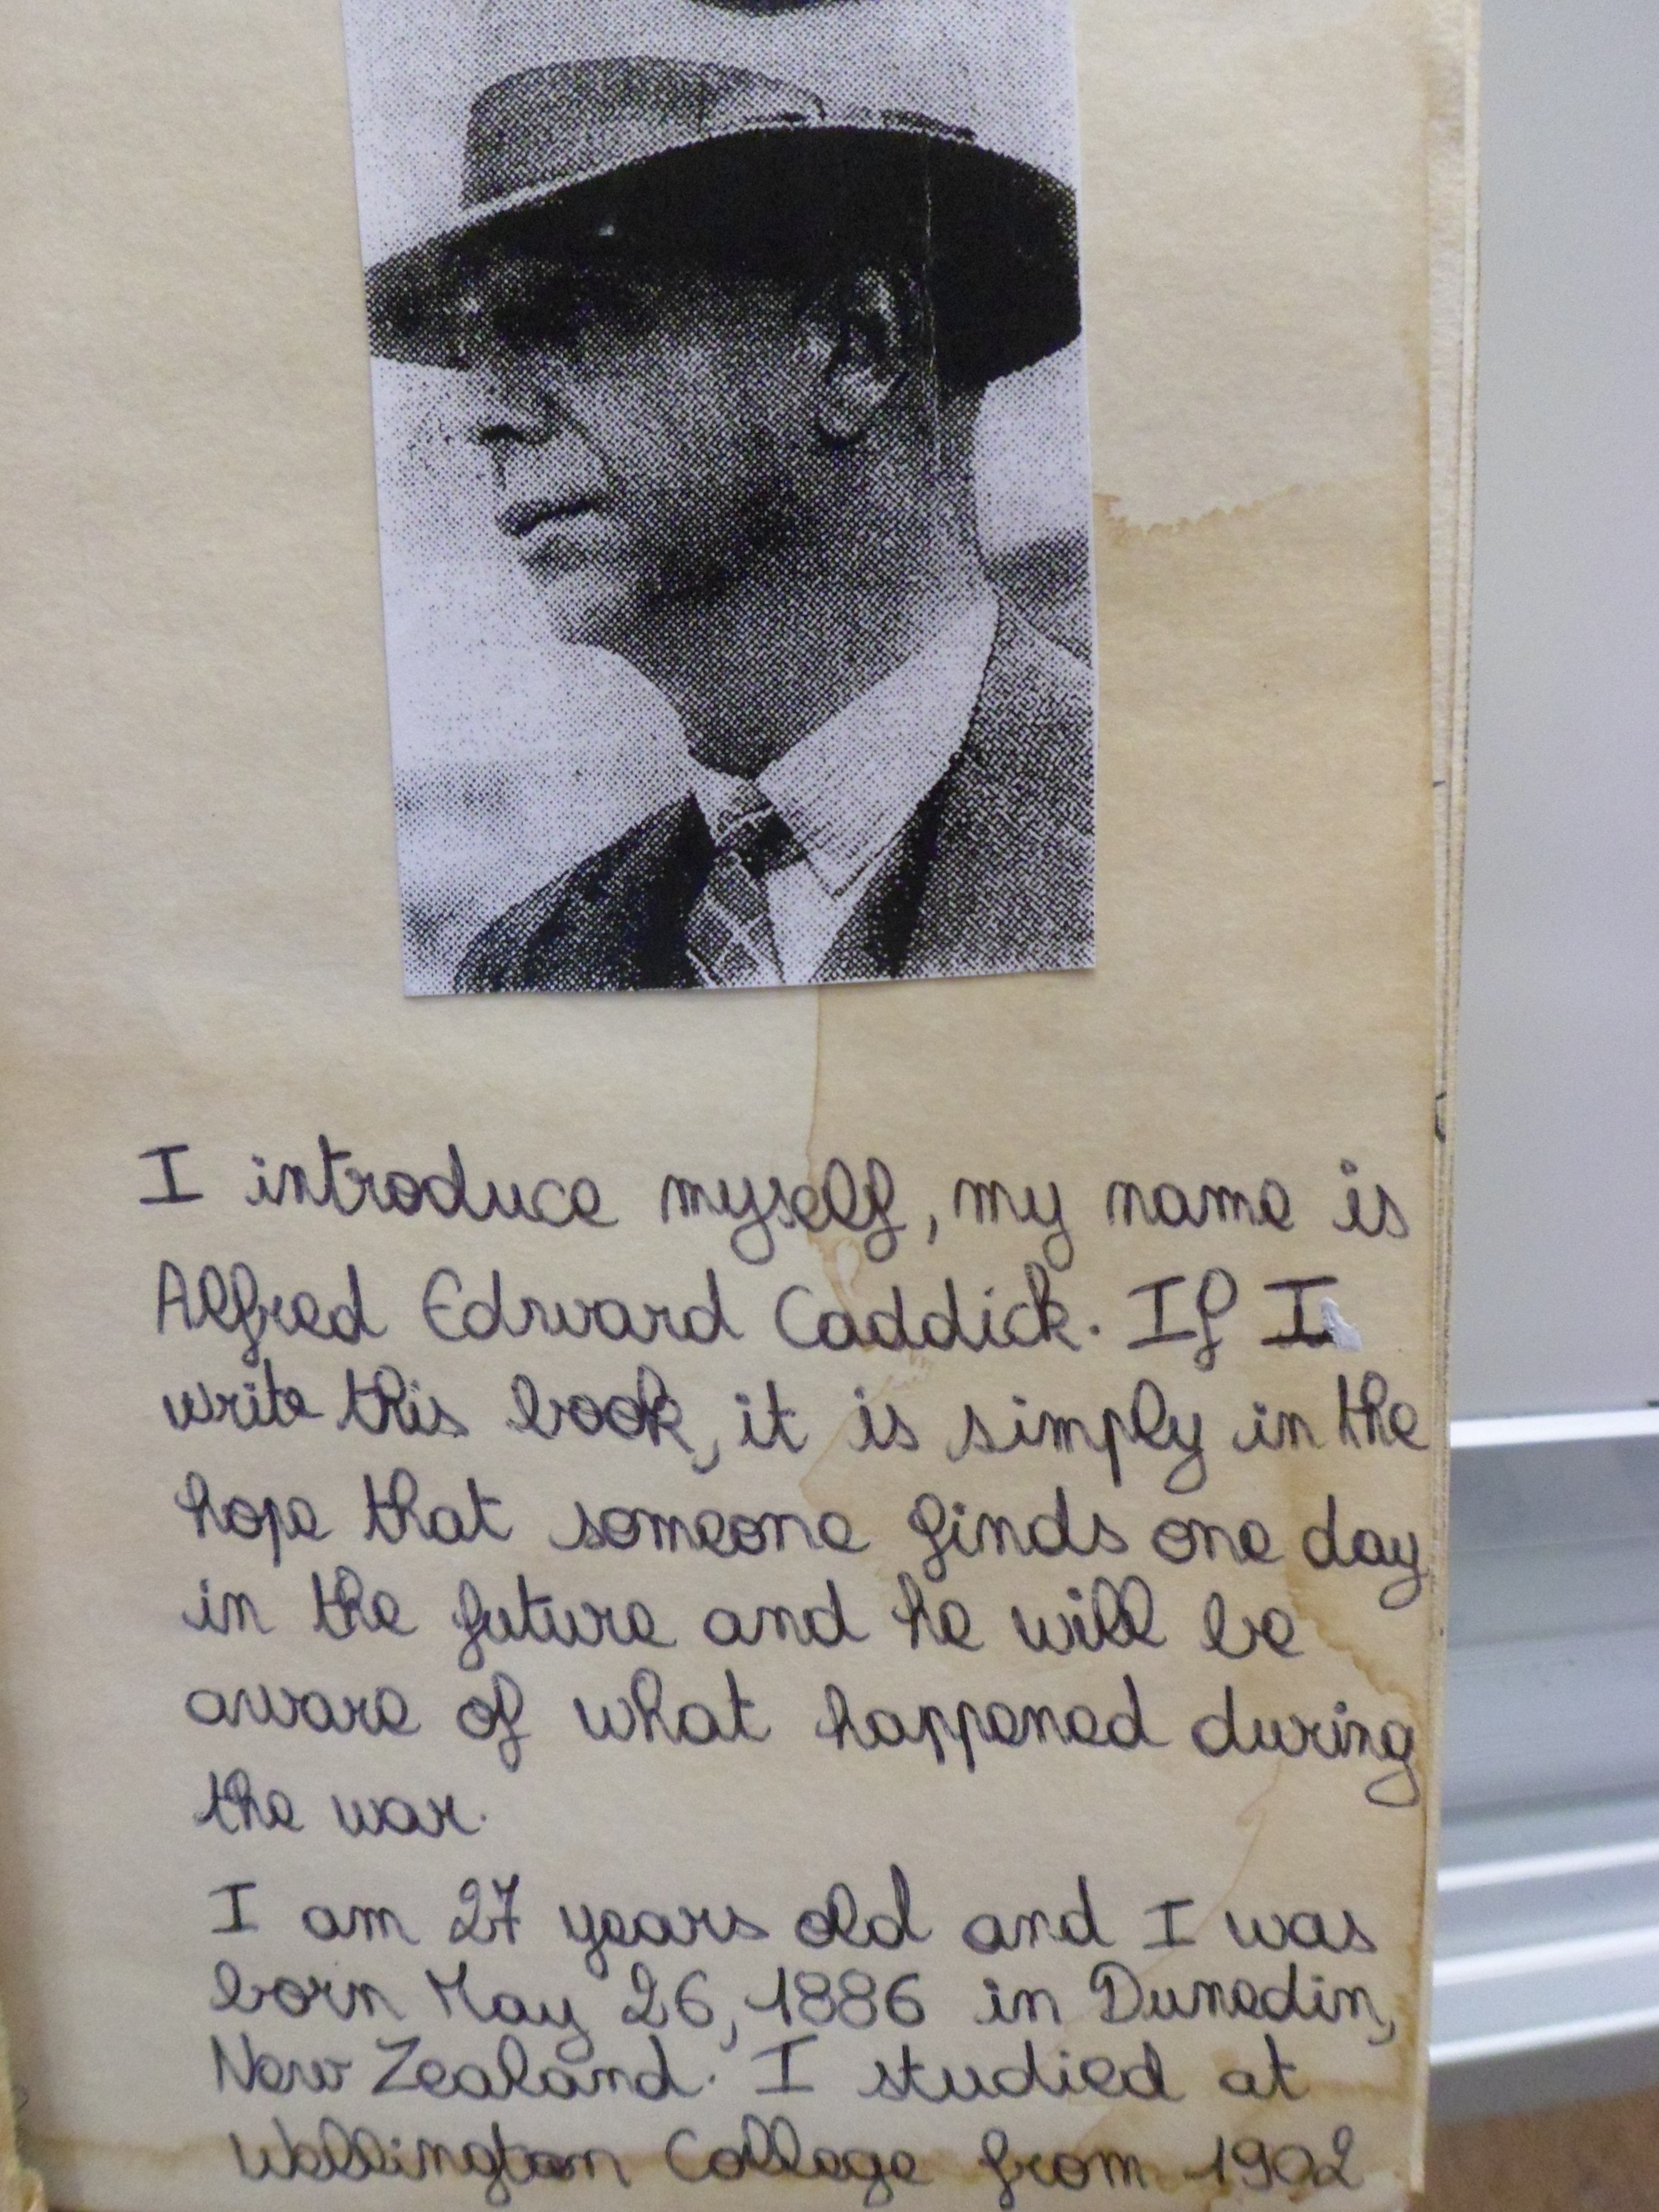 I introduce myself, my name is
Alfred Edward Caddick. If I
write this book, it is simply in the
hope that someone finds one day
in the future and he will be
aware of what happened during
the war.
I am 27 years old and I was
born May 26, 1886 in Dunedin,
New Zealand. I studied at
Wellington College from 1902